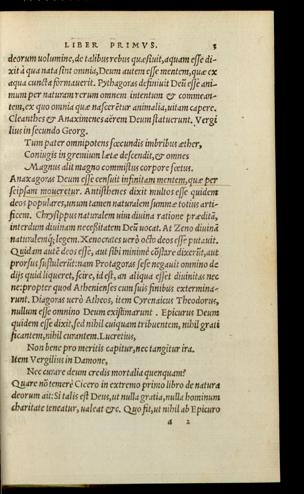 LIBER PRIMVS. 5
deorum uolumine, de talibus rebus quæsiuit, aquam esse di-
xit à qua nata sint omnia, Deum autem esse mentem, quæ ex
aqua cuncta formauerit. Pythagoras definiuit Deũ esse ani-
mum per naturam rerum omnem intentum & commean-
tem, ex quo omnia quæ nascerẽtur animalia, uitam capere.
Cleanthes & Anaximenes aërem Deum statuerunt. Vergi
lius in secundo Georg.
Tum pater omnipotens fœcundis imbribus æther,
Coniugis in gremium lætæ descendit, & omnes
Magnus alit magno commistus corpore fœtus.
Anaxagoras Deum esse censuit infinitam mentem, quæ per
seipsam moueretur. Antisthenes dixit multos esse quidem
deos populares, unum tamen naturalem summæ totius arti-
ficem. Chrysippus naturalem uim diuina ratione præditã,
interdum diuinam necessitatem Deũ uocat. At Zeno diuinã
naturalemq; legem. Xenocrates uerò octo deos esse putauit.
Quidam autẽ deos esse, aut sibi minimè cõstare dixerũt, aut
prorsus sustulerũt: nam Protagoras sese negauit omnino de
dijs quid liqueret, scire, id est, an aliqua esset diuinitas nec
ne: propter quod Athenienses eum suis finibus extermina-
runt. Diagoras uerò Atheos, item Cyrenaicus Theodorus,
nullum esse omnino Deum existimarunt. Epicurus Deum
quidem esse dixit, sed nihil cuiquam tribuentem, nihil grati
ficantem, nihil curantem. Lucretius,
Non bene pro meritis capitur, nec tangitur ira.
Item Vergilius in Damone,
Nec curare deum credis mortalia quenquam?
Quare nõ temerè Cicero in extremo primo libro de natura
deorum ait: Si talis est Deus, ut nulla gratia, nulla hominum
charitate teneatur, ualeat &c. Quo fit, ut nihil ab Epicuro
a 2